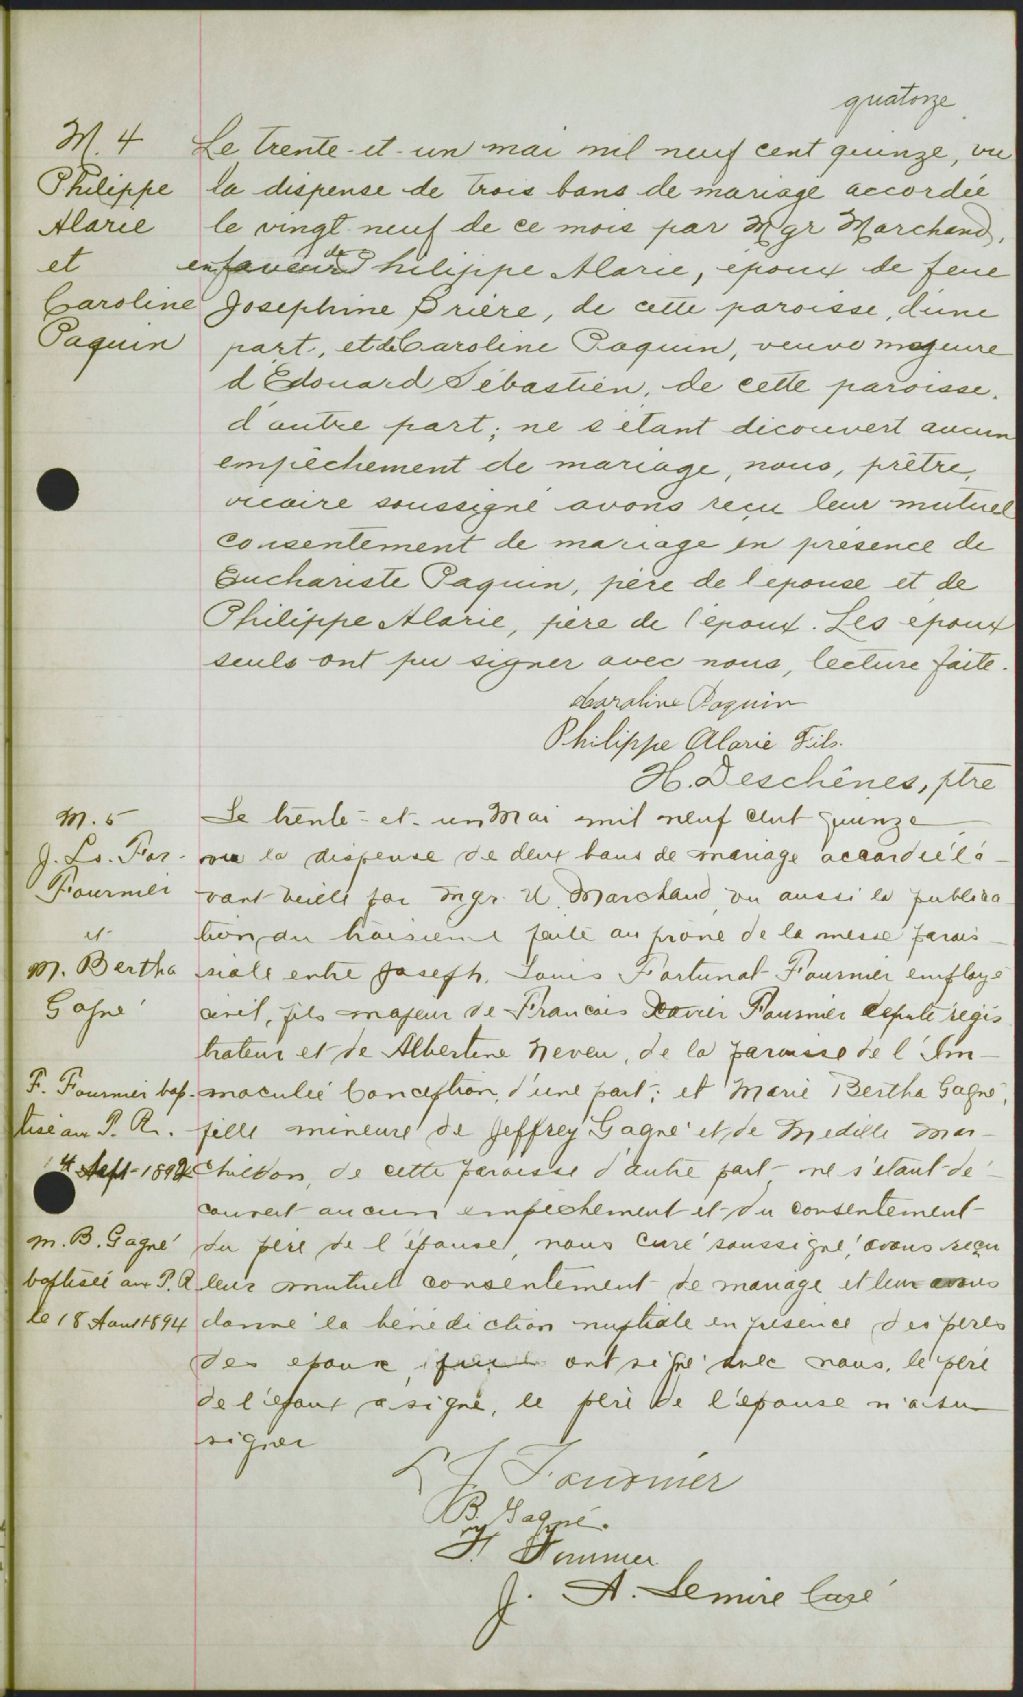 quatorze
M. 4
Philippe
Alarie
et
Caroline
Paquin
Le trente-et-un mai mil neuf cent quinze, vu
la dispense de trois bans de mariage accordée
le vingt neuf de ce mois par Mgr Marchand,
en faveur de Philippe Alarie, époux de feue
Josephine Brière, de cette paroisse, d'une
part, et de Caroline Paquin, veuve majeure
d'Edouard Sébastien, de cette paroisse.
d'autre part; ne s'étant dicouvert aucun
empêchement de mariage, nous, prêtre,
vicaire soussigné avons reçu leur mutuel
consentement de mariage en présence de
Euchariste Paquin, père de l'epouse et de
Philippe Alarie, père de l'époux. Les époux
seuls ont pu signer avec nous, lecture faite.
Caroline Paquin
Philippe Alarie Fils.
H. Deschênes, ptre
M. 5
J. Ls. For-
Fournier
et
M. Bertha
Gagné
F. Fournier bap-
tisé aux T. R.
4 Sept-1892
M. B. Gagné
baptisée aux T. R
le 18 Aout 1894
Le trente-et-un Mai mil neuf cent quinze
vu la dispense de deux bans de mariage accordée l'a-
vant veille par Mgr U. Marchand, vu aussi la publica-
tion du troisieme faite au prône de la messe parois-
siale entre Joseph Louis Fortunat Fournier employé
civil, fils majeur de Francois Xavier Fournier député régis
trateur et de Albertine Neveu, de la paroisse de l'Im-
maculée Conception, d'une part; et Marie Bertha Gagné,
fille mineure de Jeffrey Gagné et de Medille Mar-
childon, de cette paroisse d'autre part, ne s'étant dé-
couvert aucun empêchement et du consentement
du père de l'épouse, nous curé soussigné, avons reçu
leur mutuel consentement de mariage et leur avons
donné la bénédiction nuptiale en présence des peres
des epoux, ont signé avec nous, le père
de l'époux a signé, le père de l'épouse n'a su
signer
L J Fournier
B. Gagné.
F. Fournier
J. A. Lemire Curé